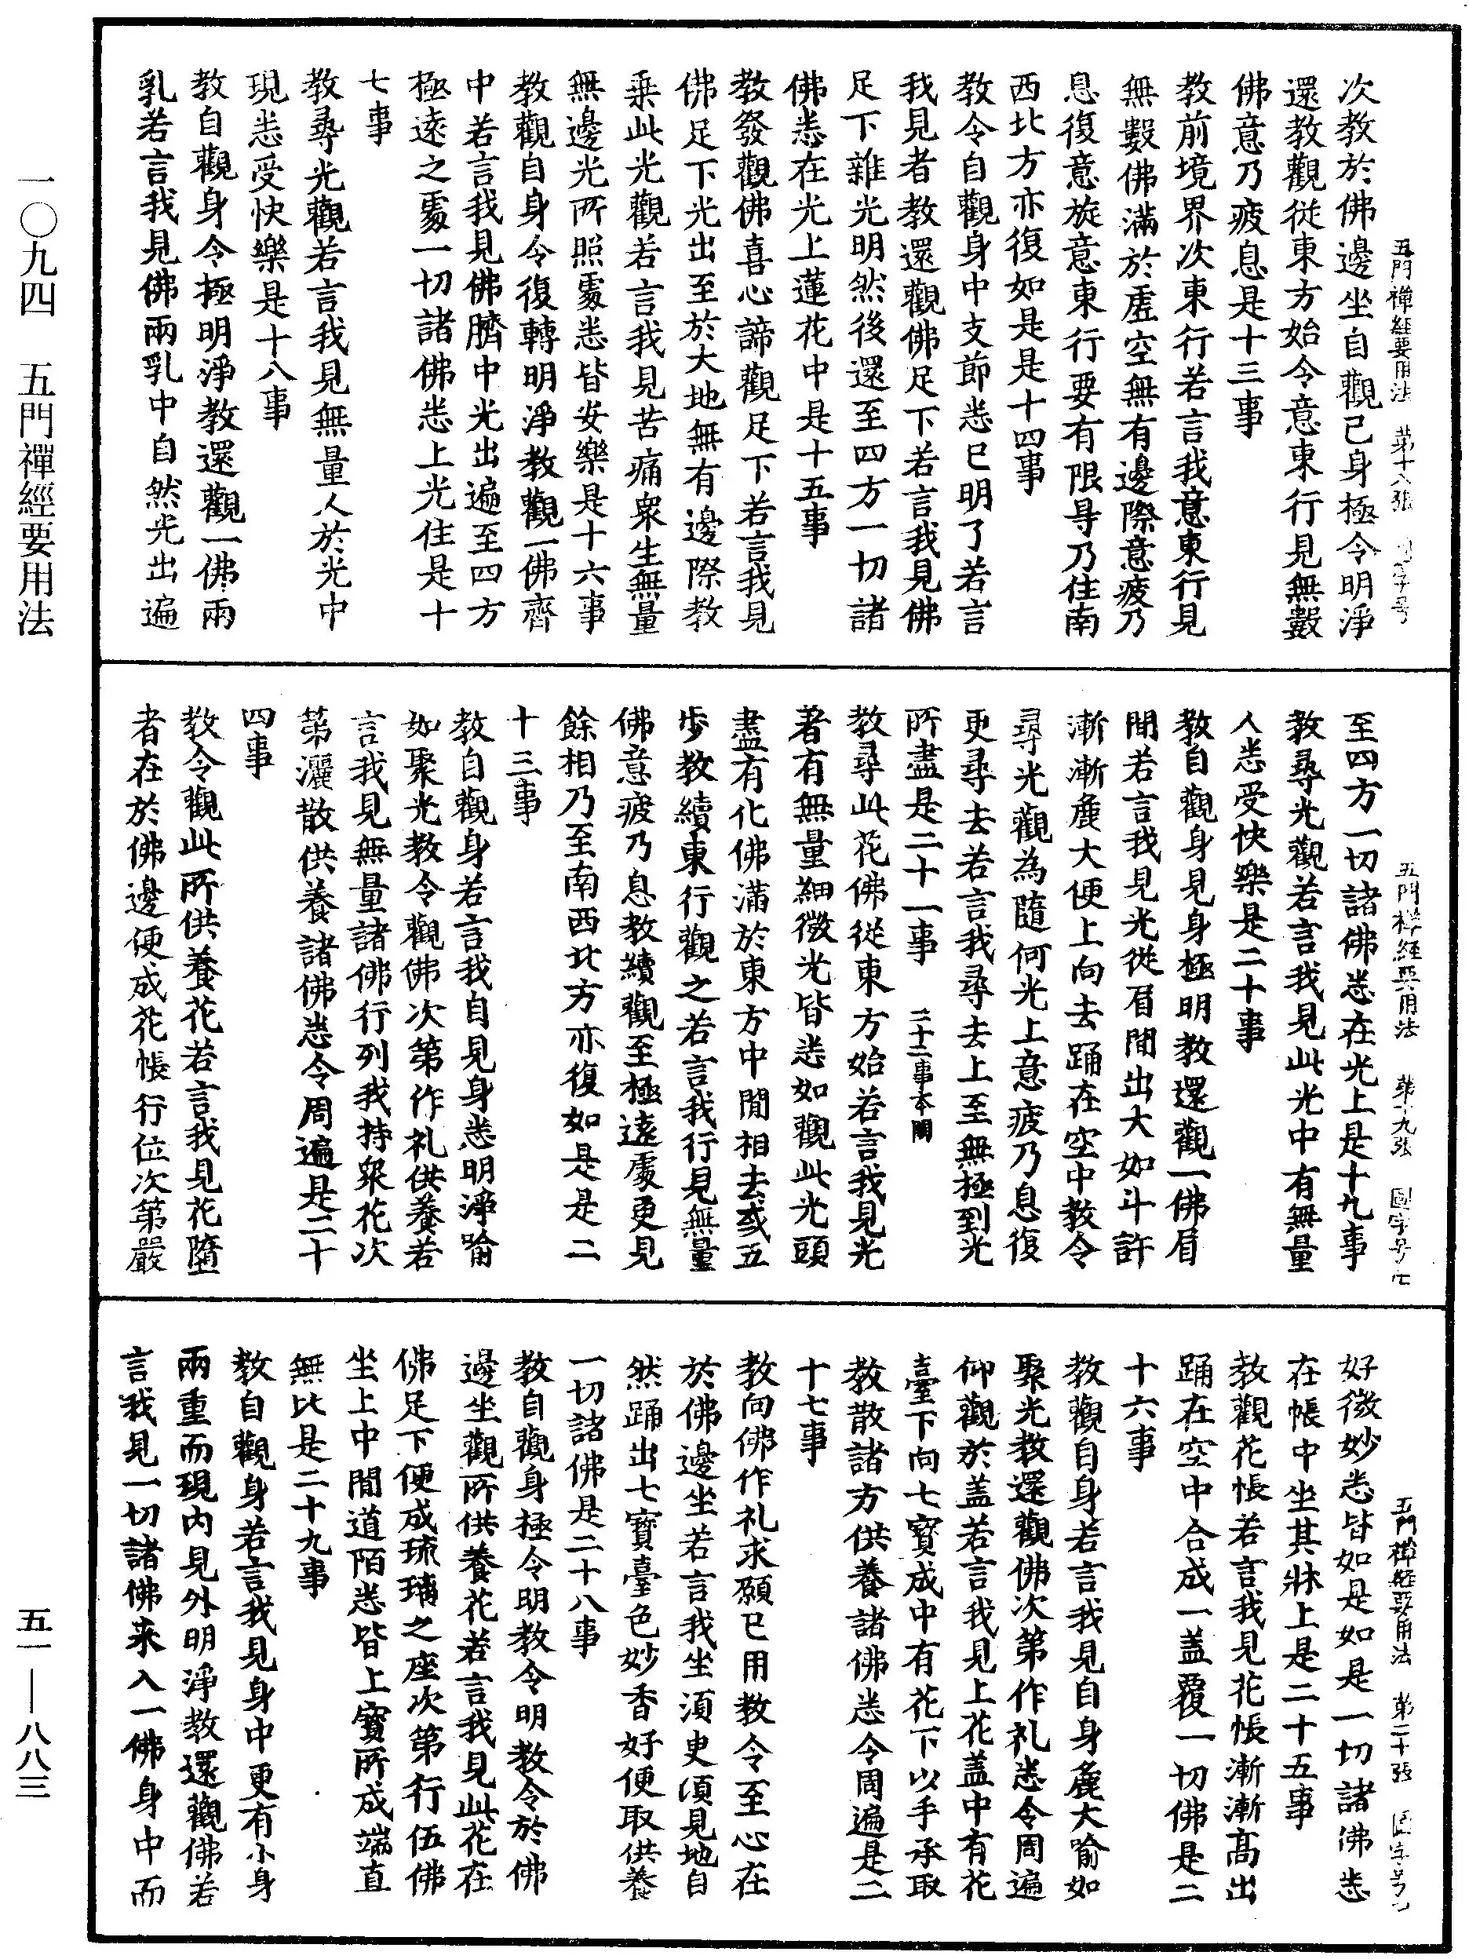 五門禪經要用法　第十八張
次教於佛邊坐自觀己身極令明淨
還教觀從東方始令意東行見無數
佛意乃疲息是十三事
教前境界次東行若言我意東行見
無數佛滿於虛空無有邊際意疲乃
息復意旋意東行要有限㝵乃住南
西北方亦復如是是十四事
教令自觀身中支節悉已明了若言
我見者教還觀佛足下若言我見佛
足下雜光明然後還至四方一切諸
佛悉在光上蓮花中是十五事
教發觀佛喜心諦觀足下若言我見
佛足下光出至於大地無有邊際教
乘此光觀若言我見苦痛衆生無量
無邊光所照處悉皆安樂是十六事
教觀自身令復轉明淨教觀一佛齊
中若言我見佛臍中光出遍至四方
極遠之處一切諸佛悉上光住是十
七事
教尋光觀若言我見無量人於光中
現悉受快樂是十八事
教自觀身令極明淨教還觀一佛兩
乳若言我見佛兩乳中自然光出遍
五門禪經要用法　第十九張　國字号
至四方一切諸佛悉在光上是十九事
教尋光觀若言我見此光中有無量
人悉受快樂是二十事
教自觀身見身極明教還觀一佛眉
間若言我見光從眉間出大如斗許
漸漸麁大便上向去踊在空中教令
尋光觀為隨何光上意疲乃息復
更尋去若言我尋去上至無極到光
所盡是二十一事　二十二事本闕
教尋此花佛從東方始若言我見光
者有無量細微光皆悉如觀此光頭
盡有化佛滿於東方中間相去或五
步教續東行觀之若言我行見無量
佛意疲乃息教續觀至極遠處更見
餘相乃至南西北方亦復如是是二
十三事
教自觀身若言我自見身悉明淨喻
如聚光教令觀佛次第作礼供養若
言我見無量諸佛行列我持衆花次
第灑散供養諸佛悉令周遍是二十
四事
教令觀此所供養花若言我見花墮
者在於佛邊便成花帳行位次第嚴
五門禪經要用法　第二十張
好微妙悉皆如是如是一切諸佛悉
在帳中坐其牀上是二十五事
教觀花帳若言我見花帳漸漸高出
踊在空中合成一蓋覆一切佛是二
十六事
教觀自身若言我見自身麁大喻如
聚光教還觀佛次第作礼悉令周遍
仰觀於盖若言我見上花盖中有花
臺下向七寶成中有花下以手承取
教散諸方供養諸佛悉令周遍是二
十七事
教向佛作礼求願已用教令至心在
於佛邊坐若言我坐須臾須見地自
然踊出七寶臺色妙香好便取供養
一切諸佛是二十八事
教自觀身極令明教令明教令於佛
邊坐觀所供養花若言我見此花在
佛足下便成琉璃之座次第行伍佛
坐上中間道陌悉皆上寶所成端直
無比是二十九事
教自觀身若言我見身中更有小身
兩重而現內見外明淨教還觀佛若
言我見一切諸佛来入一佛身中而
一〇九四　五門禪經要用法
五一—八八三